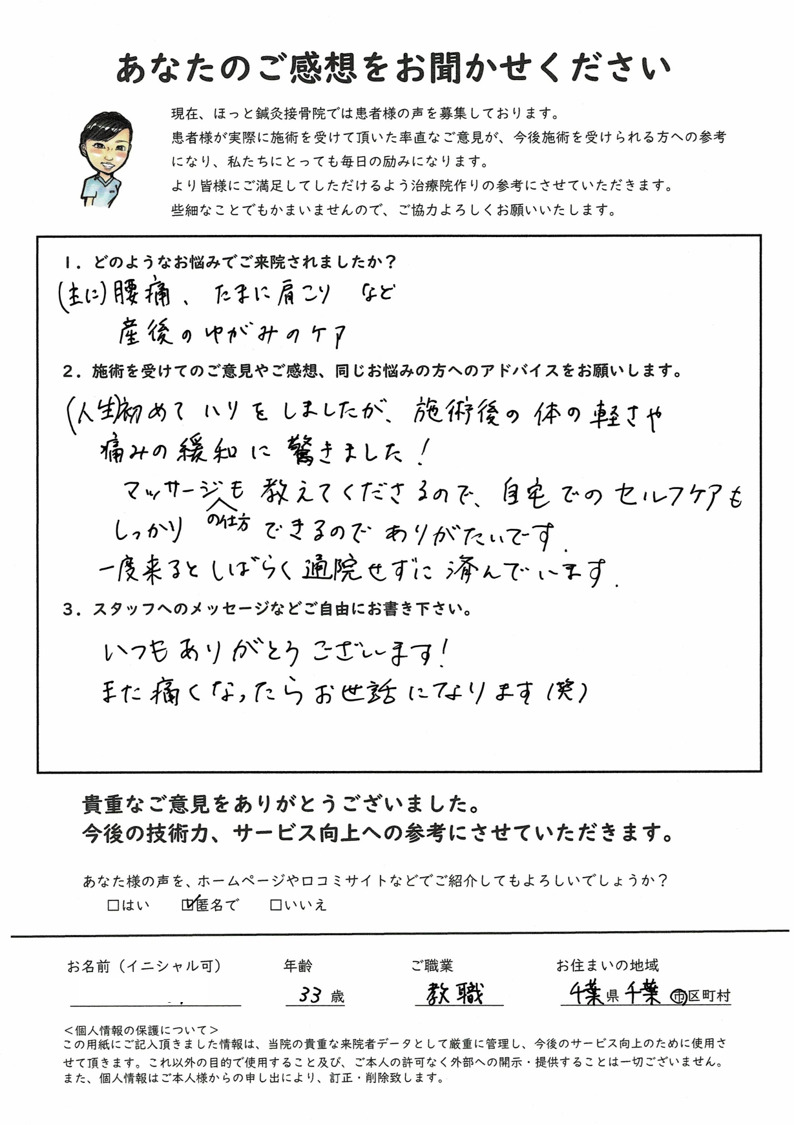 あなたのご感想をお聞かせください
現在、ほっと鍼灸接骨院では患者様の声を募集しております。
患者様が実際に施術を受けて頂いた率直なご意見が、今後施術を受けられる方への参考
になり、私たちにとっても毎日の励みになります。
より皆様にご満足してしただけるよう治療院作りの参考にさせていただきます。
些細なことでもかまいませんので、ご協力よろしくお願いいたします。
1．どのようなお悩みでご来院されましたか？
(主に)腰痛、たまに肩こり など
産後のゆがみのケア
2．施術を受けてのご意見やご感想、同じお悩みの方へのアドバイスをお願いします。
(人生)初めてハリをしましたが、施術後の体の軽さや
痛みの緩和に驚きました！
マッサージの仕方も教えてくださるので、自宅でのセルフケアも
しっかりできるのでありがたいです.
一度来るとしばらく通院せずに済んでいます.
3．スタッフへのメッセージなどご自由にお書き下さい。
いつもありがとうございます！
また痛くなったらお世話になります(笑)
貴重なご意見をありがとうございました。
今後の技術力、サービス向上への参考にさせていただきます。
あなた様の声を、ホームページや口コミサイトなどでご紹介してもよろしいでしょうか？
□はい ☑匿名で □いいえ
お名前（イニシャル可） 年齢 ご職業 お住まいの地域
33 歳 教職 千葉県千葉市区町村
＜個人情報の保護について＞
この用紙にご記入頂きました情報は、当院の貴重な来院者データとして厳重に管理し、今後のサービス向上のために使用さ
せて頂きます。これ以外の目的で使用すること及び、ご本人の許可なく外部への開示・提供することは一切ございません。
また、個人情報はご本人様からの申し出により、訂正・削除致します。